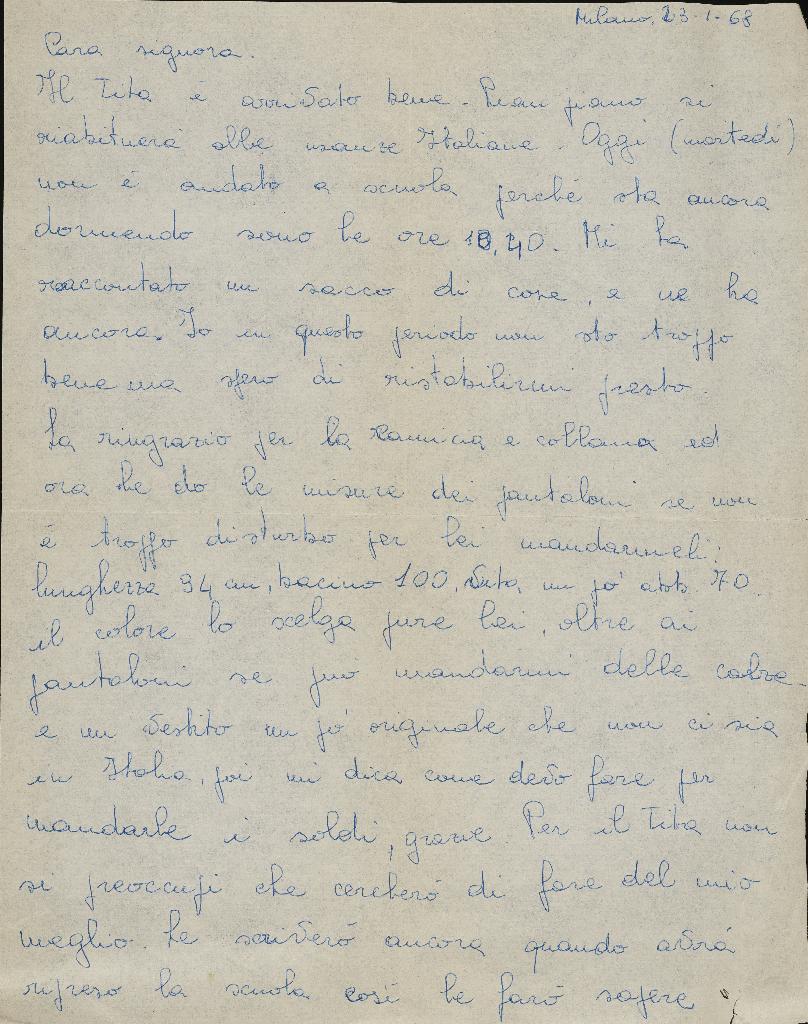 Milano, 23-1-68
Cara signora.
Il Tita è arrivato bene. Pian piano si
riabituerá alle usanze Italiane. Oggi (martedí)
non é andato a scuola perché sta ancora
dormendo sono le ore 10,40. Mi ha
raccontato un sacco di cose, e ne ha
ancora. Io in questo periodo non sto troppo
bene ma spero di ristabilirmi presto.
La ringrazio per la camicia e collana ed
ora le do le misure dei pantaloni se non
é troppo disturbo per lei mandarmeli:
lunghezza 94 cm, bacino 100, vita un po' abb. 70.
il colore lo scelga pure lei, oltre ai
pantaloni se può mandarmi delle calze
e un vestito un po' originale che non ci sia
in Italia, poi mi dica come devo fare per
mandarle i soldi, grazie. Per il Tita non
si preoccupi che cercheró di fare del mio
meglio. Le scriveró ancora quando avrá
ripreso la scuola cosí le faró sapere